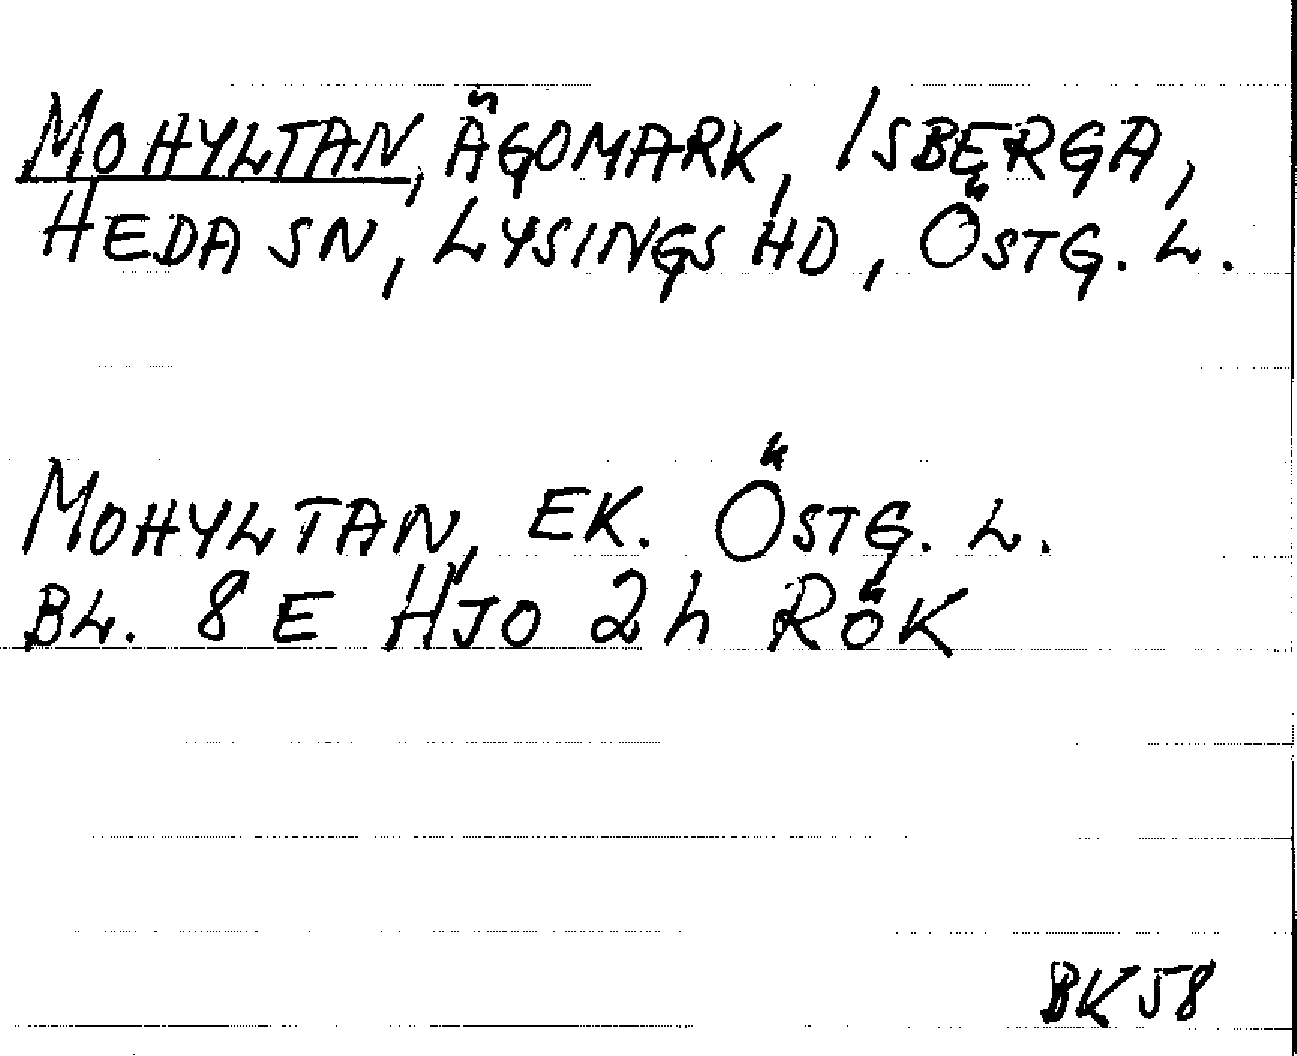 MOHYLTAN, ÄGOMARK, ISBERGA,
HEDA SN, LYSINGS HD, ÖSTG. L.
MOHYLTAN, EK. ÖSTG. L.
BL. 8 E HJO 2 h RÖK
BK 58